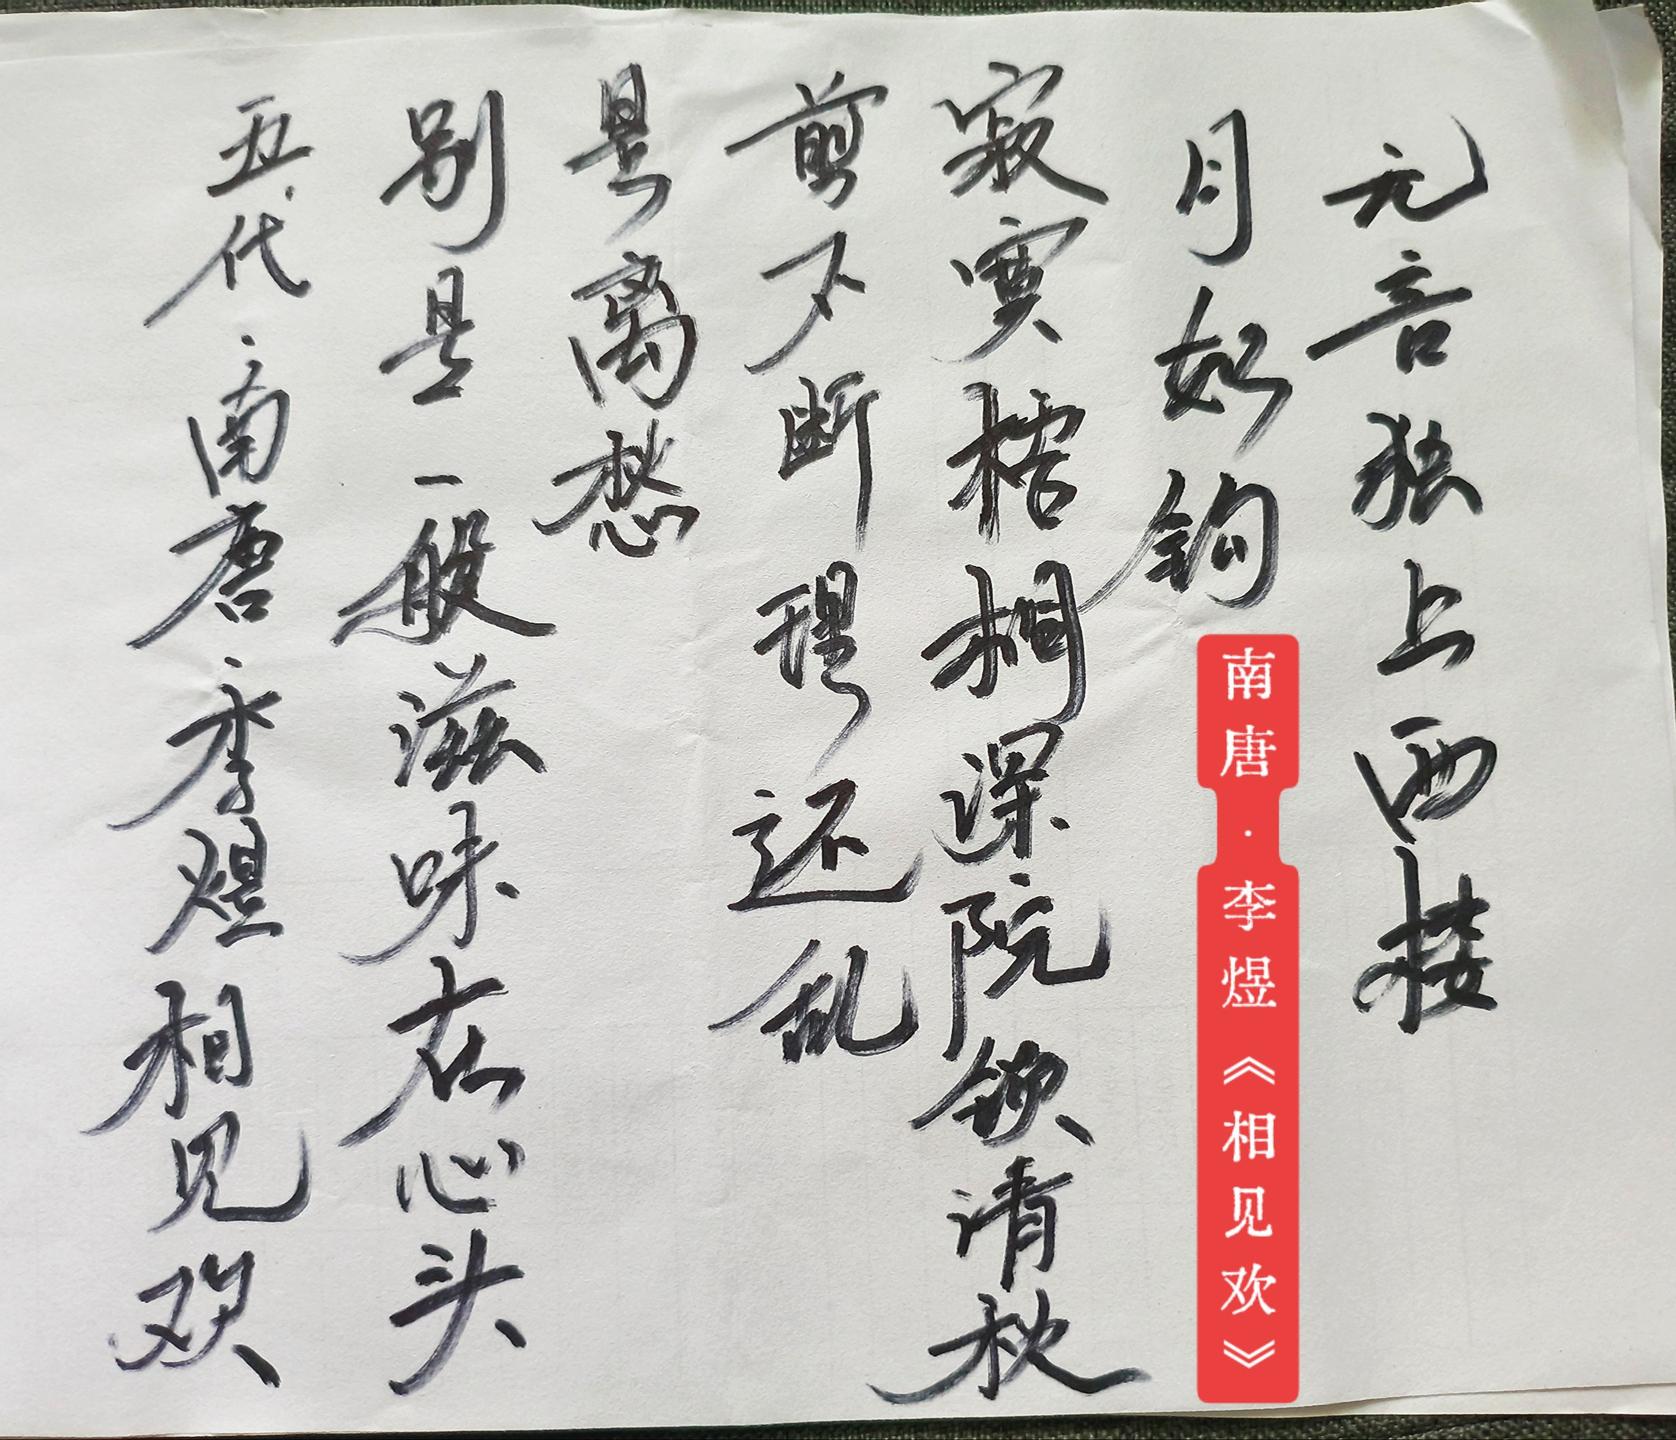 无言独上西楼
月如钩
寂寞梧桐深院锁清秋
剪不断理还乱
是离愁
别是一般滋味在心头
五代·南唐·李煜相见欢
南唐·李煜《相见欢》